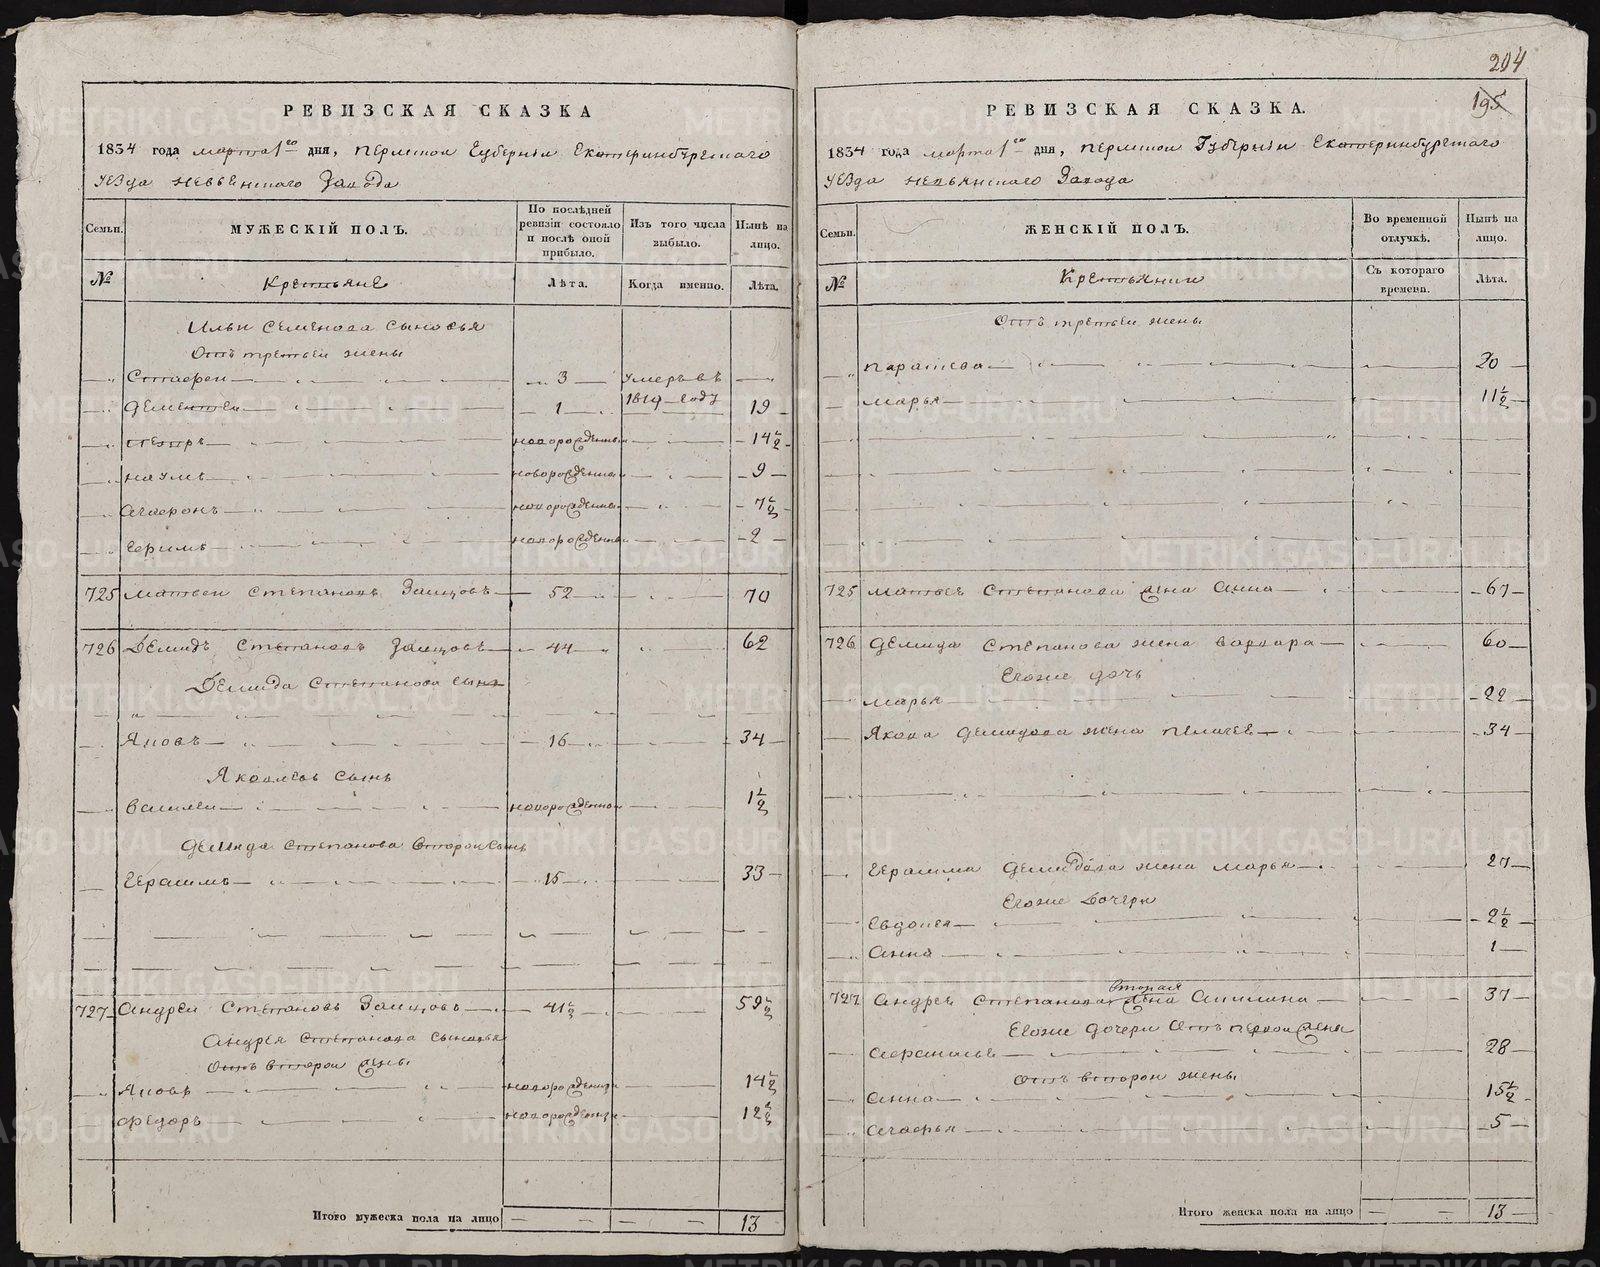 204
РЕВИЗСКАЯ СКАЗКА
1834 года марта 1го дня, пермской Губернии Екатеринбургскаго
уезда невьянскаго Завода
Семьи. МУЖЕСКІЙ ПОЛЪ. По послѣдней ревизіи состояло и послѣ оной прибыло. Изъ того числа выбыло. Нынѣ на лицо.
№ Крестьяне Лѣта. Когда именно. Лѣта.
Ильи Семенова сыновья
Отъ третьей жены
3 умеръ въ
дементей 1 1819 году 19
петръ новорожденны 14½
наумъ новорожденны 9
агафонъ новорожденны 7½
ефимъ новорожденны 2
725 матвеи степановъ Заицовъ 52 70
726 Демидъ степановъ Заицовъ 44 62
Демида степанова сынъ
Яковъ 16 34
Яковлевъ сынъ
василеи новорожденнои 1½
демида степанова второи сынъ
герасимъ 15 33
727 андреи степановъ Заицовъ 41½ 59½
андрея степанова сыновья
отъ второи жены
Яковъ новорожденны 14½
федоръ новорожденны 12½
Итого мужеска пола на лицо 13
195
РЕВИЗСКАЯ СКАЗКА.
1834 года марта 1го дня, пермской Губернии Екатеринбургскаго
уезда невьянскаго Завода
Семьи. ЖЕНСКІЙ ПОЛЪ. Во временной отлучкѣ. Нынѣ на лицо.
№ Крестьянки Съ котораго времени. Лѣта.
Отъ третьеи жены
парасковья 20
марья 11½
725 матвея степанова жена анна 67
726 демида степанова жена варвара 60
Егоже дочь
марья 22
Якова демидова жена пелагея 34
герасима демидова жена марья 27
Егоже дочери
евдокея 2½
анна 1
727 андрея степанова вторая жена акилина 37
Егоже дочери отъ первои жены
28
отъ второи жены
анна 15½
агафья 5
Итого женска пола на лицо 13
METRIKI.GASO-URAL.RU